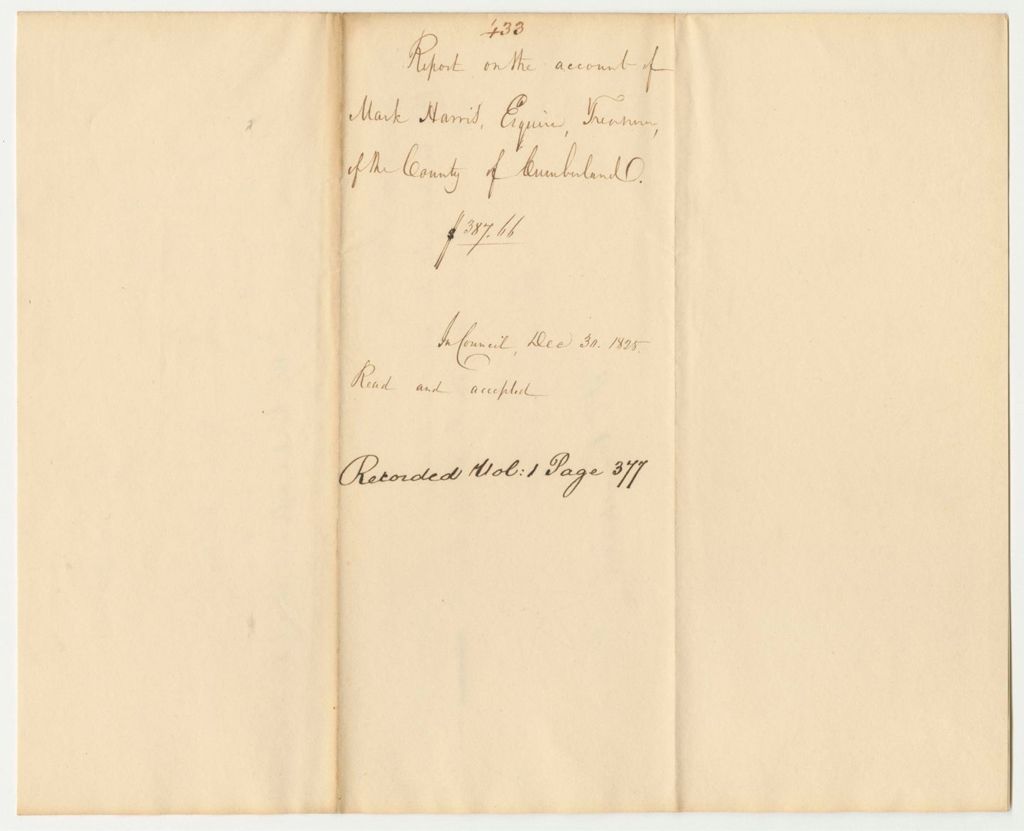 433
Report on the account of
Mark Harris, Esquire, Treasurer,
of the County of Cumberland.
$387.66
In Council, Dec 30. 1825.
Read and accepted
Recorded Vol: 1 Page 377